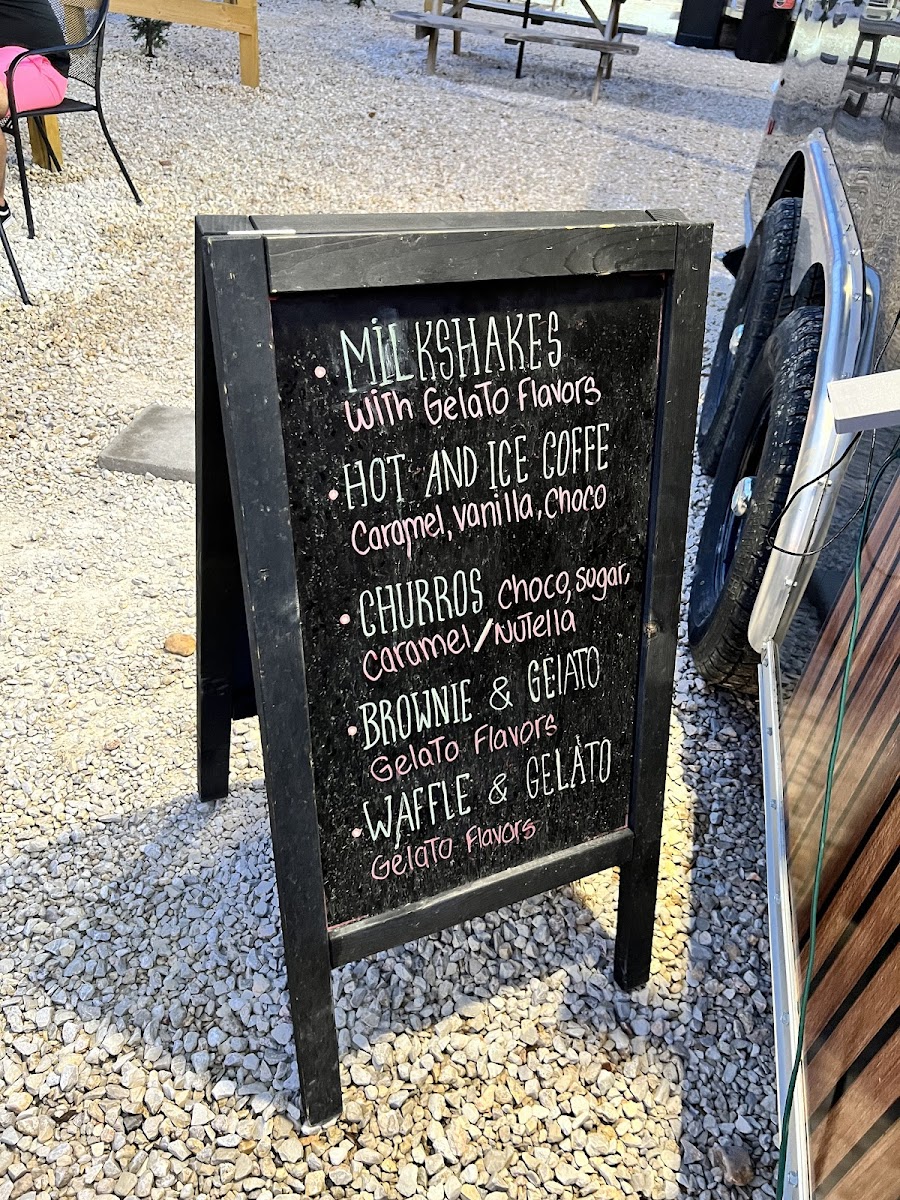 • MILKSHAKES
with Gelato Flavors
• HOT AND ICE COFFE
Caramel, vanilla, Choco
• CHURROS Choco, sugar,
Caramel/Nutella
• BROWNIE & GElATO
Gelato Flavors
• WAFFLE & GELATO
Gelato Flavors